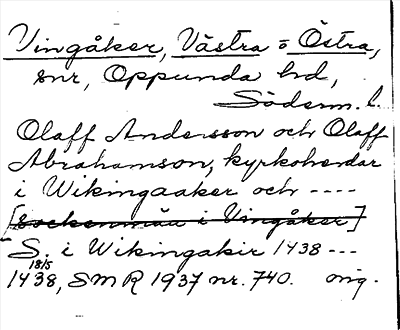 Vingåker, Västra o Östra,
snr, Oppunda hd,
Söderm. l.
Olaff Andersson och Olaff
Abrahamson, kyrkoherdar
i Wikingaaker och ----
[sockenmän i Vingåker]
S. i Wikingakir 1438 ---
18/5
1438, SMR 1937 nr. 740. orig.